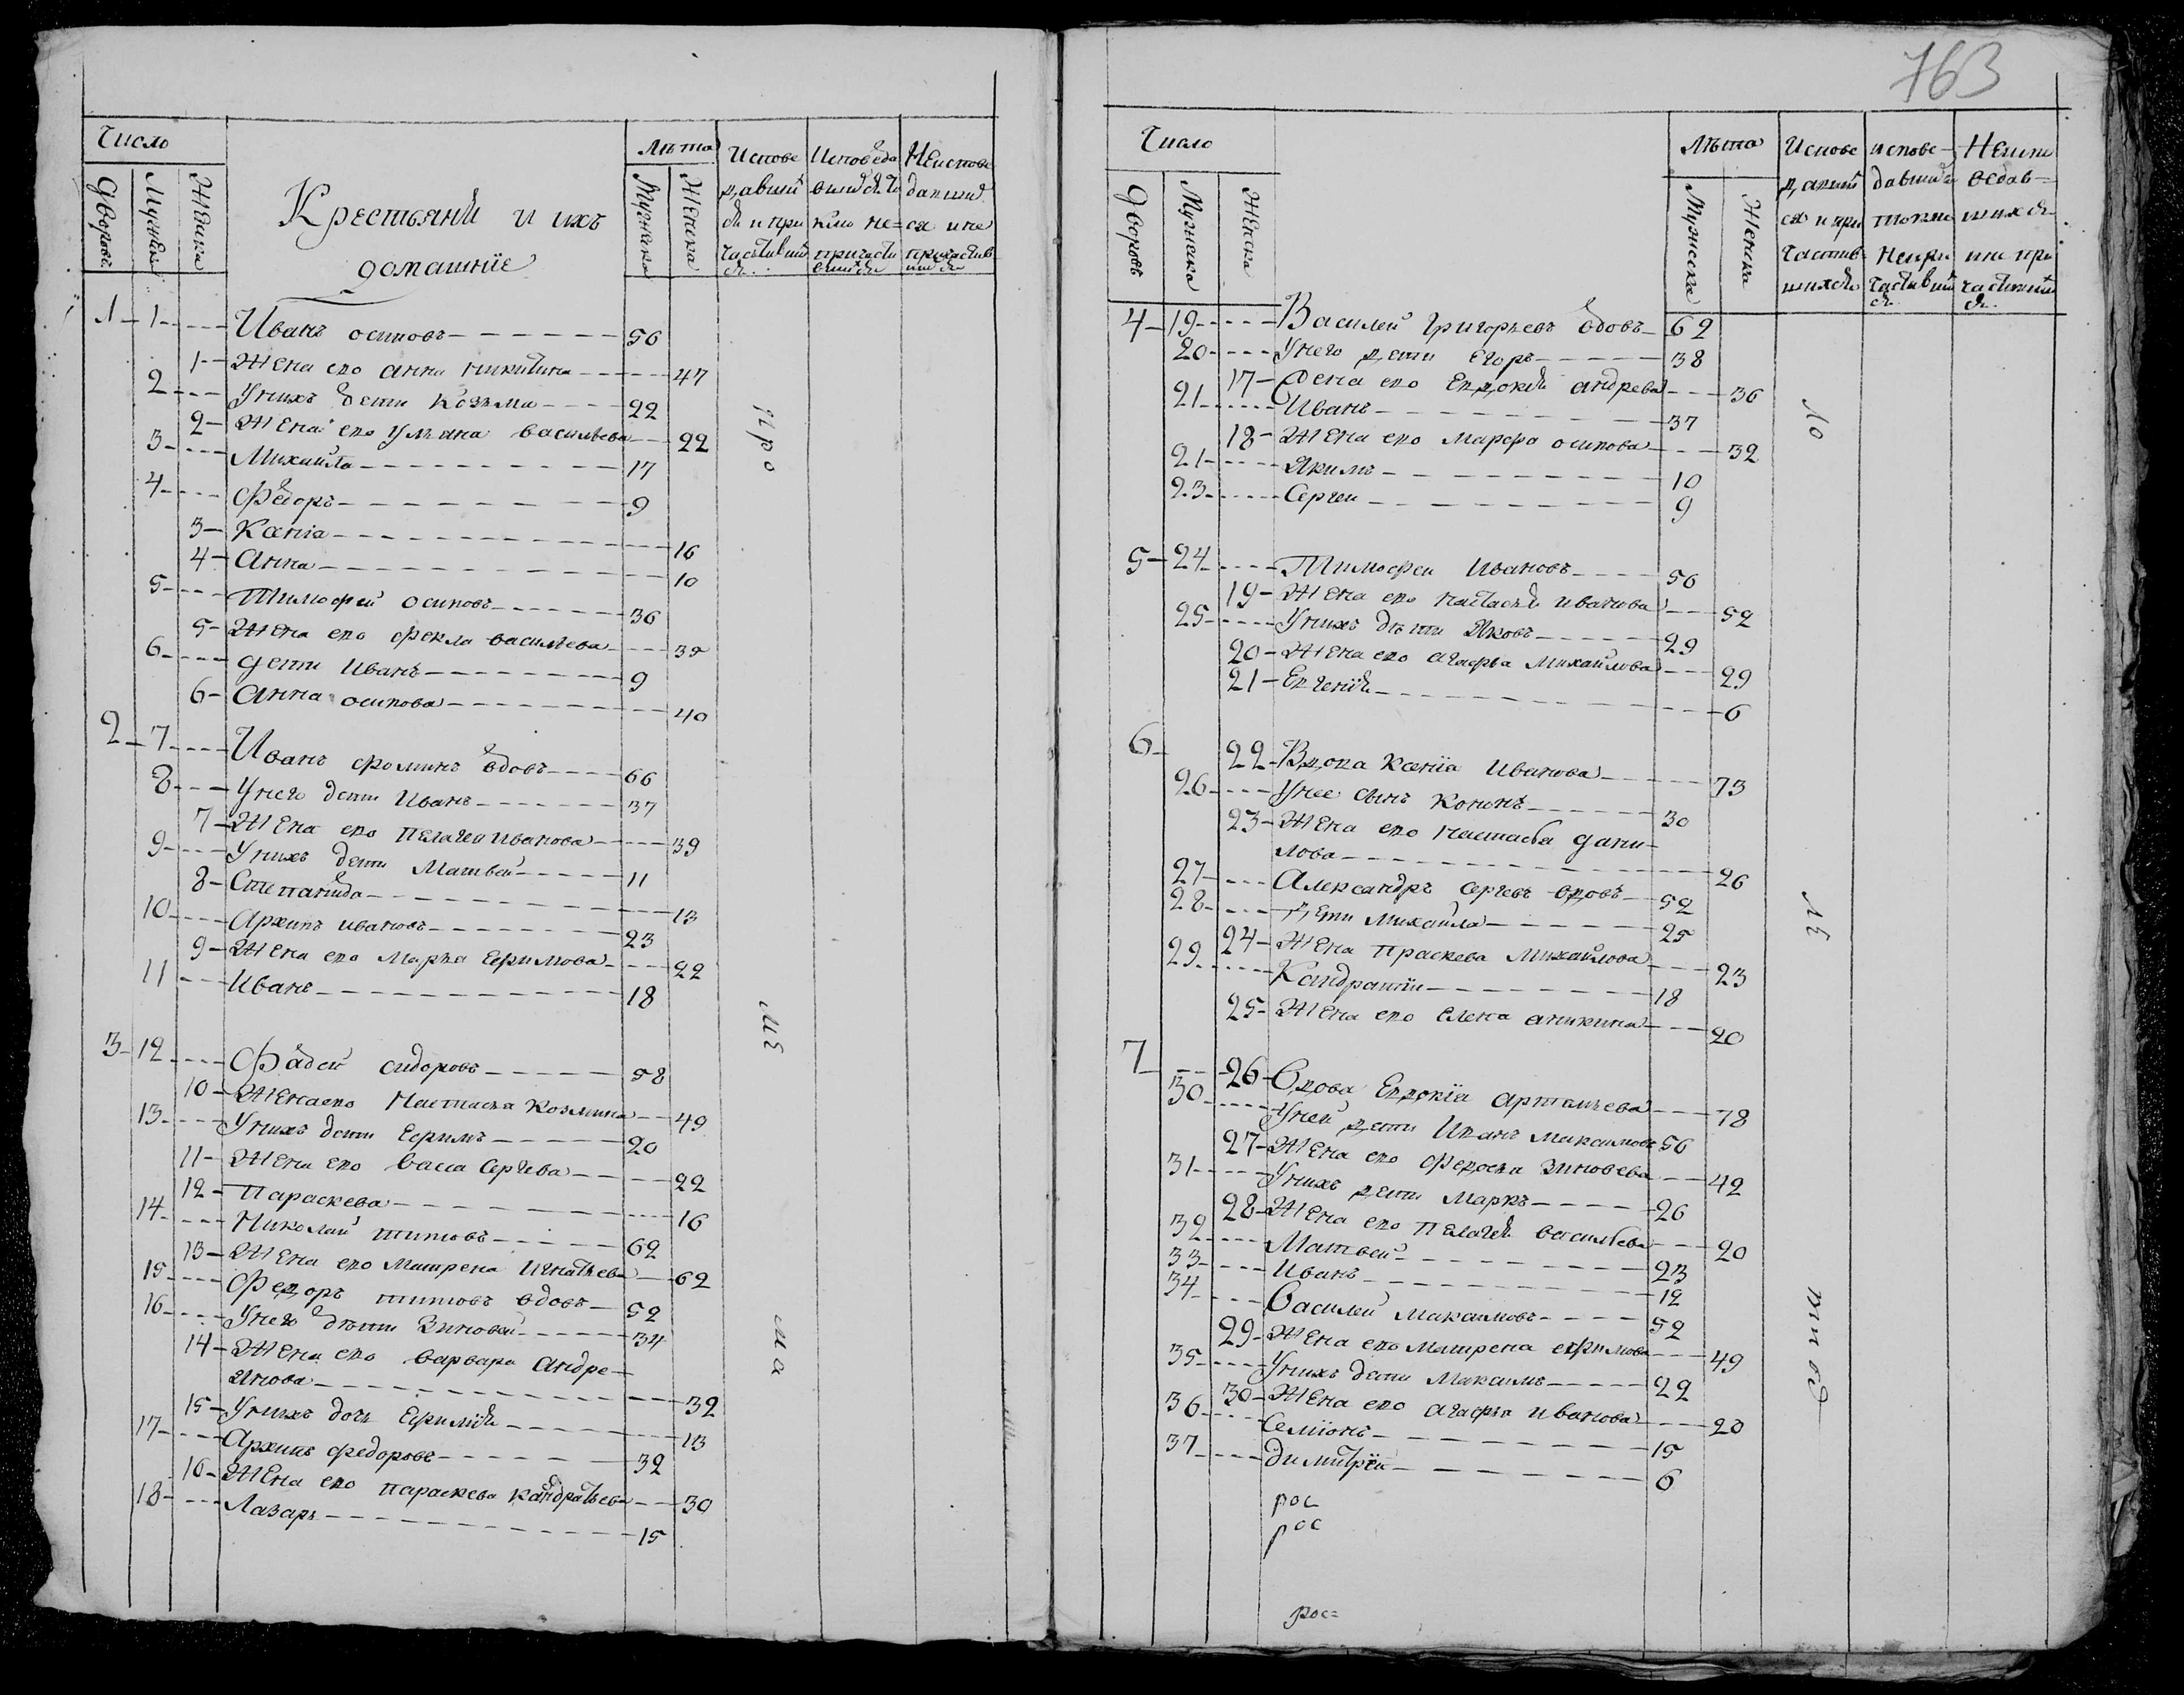 763
Число
Крестьянѣ и ихъ
домашнїе
Лѣта
Дворовъ
Мужска
Женска
Мужска
Женска
1 1 Иванъ осиповъ 56
1 Жена его анна никитина 47
2 У нихъ дети козьма 22
2 Жена его ульяна васильева 22
3 Михаила 17
4 Федоръ 9
3 Ксенїа 16
4 Анна 10
5 Тимофей осиповъ 36
5 Жена его фекла васильева 35
6 дети Иванъ 9
6 Анна осипова 40
2 7 Иванъ фоминъ вдовъ 66
8 У него дети Иванъ 37
7 Жена его пелагея Иванова 39
9 У нихъ дети Матвей 11
8 Степанида 13
10 Архипъ ивановъ 23
9 Жена его Марья Ефимова 22
11 Иванъ 18
3 12 Фадей сидоровъ 58
10 Жена его Настасья козмина 49
13 У нихъ дети Ефимъ 20
11 Жена его васса Сергева 22
12 Параскева 16
14 Николай титовъ 62
13 Жена его Матрена Игнатьева 62
15 Федоръ титовъ вдовъ 52
16 У него дѣти Зиновей 34
14 Жена его варвара Андре-
янова 32
15 У нихъ дочь Ефимїя 13
17 Архипъ федоровъ 32
16 Жена его параскева кандратьева 30
18 Лазарь 15
Число
Лѣта
Дворовъ
Мужска
Женска
Мужска
Женска
4 19 Василей григорьевъ вдовъ 62
20 У него дети Егоръ 38
17 Жена его Евдокїя андрева 36
21 Иванъ 37
18 Жена его марфа осипова 32
21 Якимъ 10
23 Сергеи 9
5 24 Тимофеи Ивановъ 56
19 Жена его настасья иванова 52
25 У нихъ дѣти Яковъ 29
20 Жена его агафья Михайлова 29
21 Евгенїя 6
6 22 Вдова ксенїа Иванова 73
26 У нее сынъ кононъ 30
23 Жена его настасья дани-
лова 26
27 Александръ сергевъ вдовъ 52
28 дети михайла 25
24 Жена праскева Михайлова 23
29 Кандратїи 18
25 Жена его елена аникина 20
7 26 Вдова Евдокїа артемьева 78
30 У ней дети Иванъ максимовъ 56
27 Жена его федосья зиновева 42
31 У нихъ дети маркъ 26
28 Жена его пелагея васильева 20
32 Матвей 23
33 Иванъ 12
34 Василей макаимовъ 52
29 Жена его Матрена ефимова 49
35 У нихъ дети Максимъ 22
30 Жена его агафья иванова 20
36 Семїонъ 15
37 Димитреи 6
рос
рос
рос=